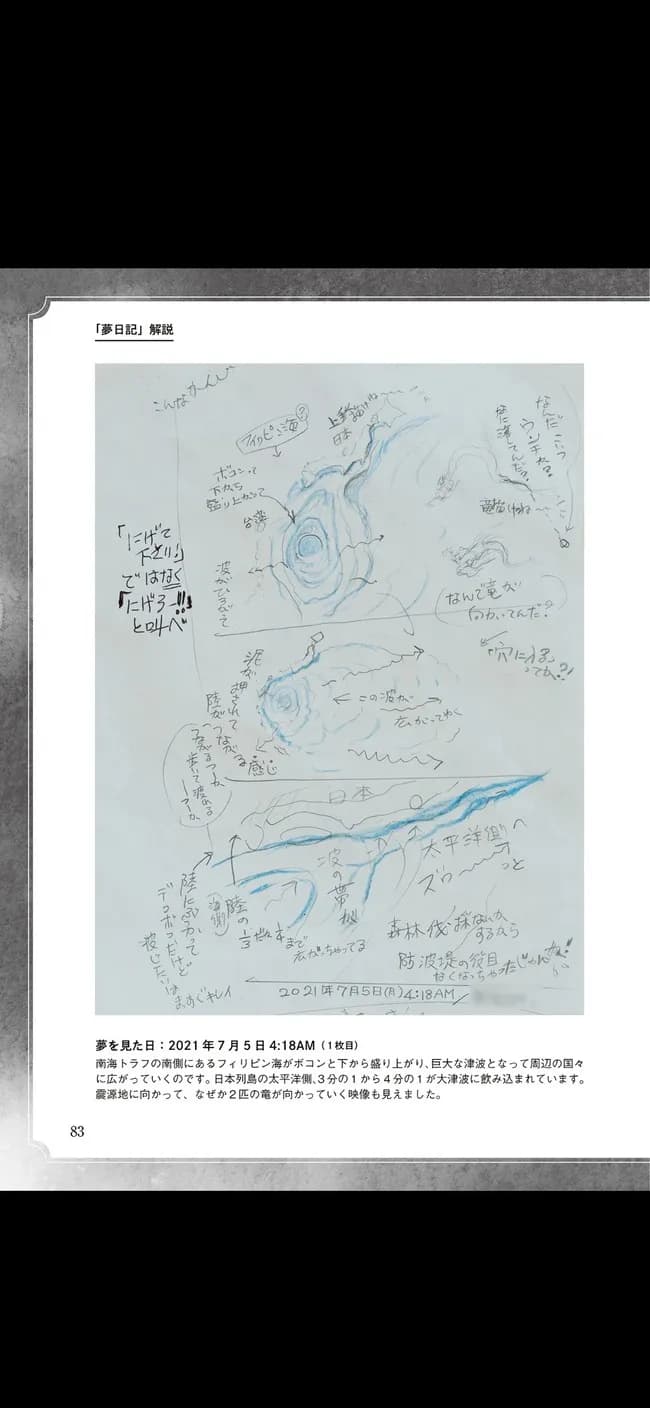 「夢日記」解説
こんなかんじ
フィリピン海?
ボコンって
下から
盛り上がって
台湾
日本
波がひろがって
なんだこいつ
竜描けね〜
なんで竜が
向かってんだ?
「にげて
下さい」
ではなく
「にげろー!!」
と叫べ
泥が押されて
陸がつながる
感じ
歩いて渡れる
この波が
広がってゆく
日本
波の帯が
太平洋側へ
ズゥ〜〜〜っと
陸にぶつかって
デコボコだけど
波じたいは
まっすぐキレイ
陸の
(海側)
まで
広がっちゃってる
森林伐採なんか
するから
防波堤の役目
なくなっちゃったじゃんか!!
2021年7月5日(月)4:18AM
夢を見た日:2021年7月5日 4:18AM(1枚目)
南海トラフの南側にあるフィリピン海がボコンと下から盛り上がり、巨大な津波となって周辺の国々
に広がっていくのです。日本列島の太平洋側、3分の1から4分の1が大津波に飲み込まれています。
震源地に向かって、なぜか2匹の竜が向かっていく映像も見えました。
83